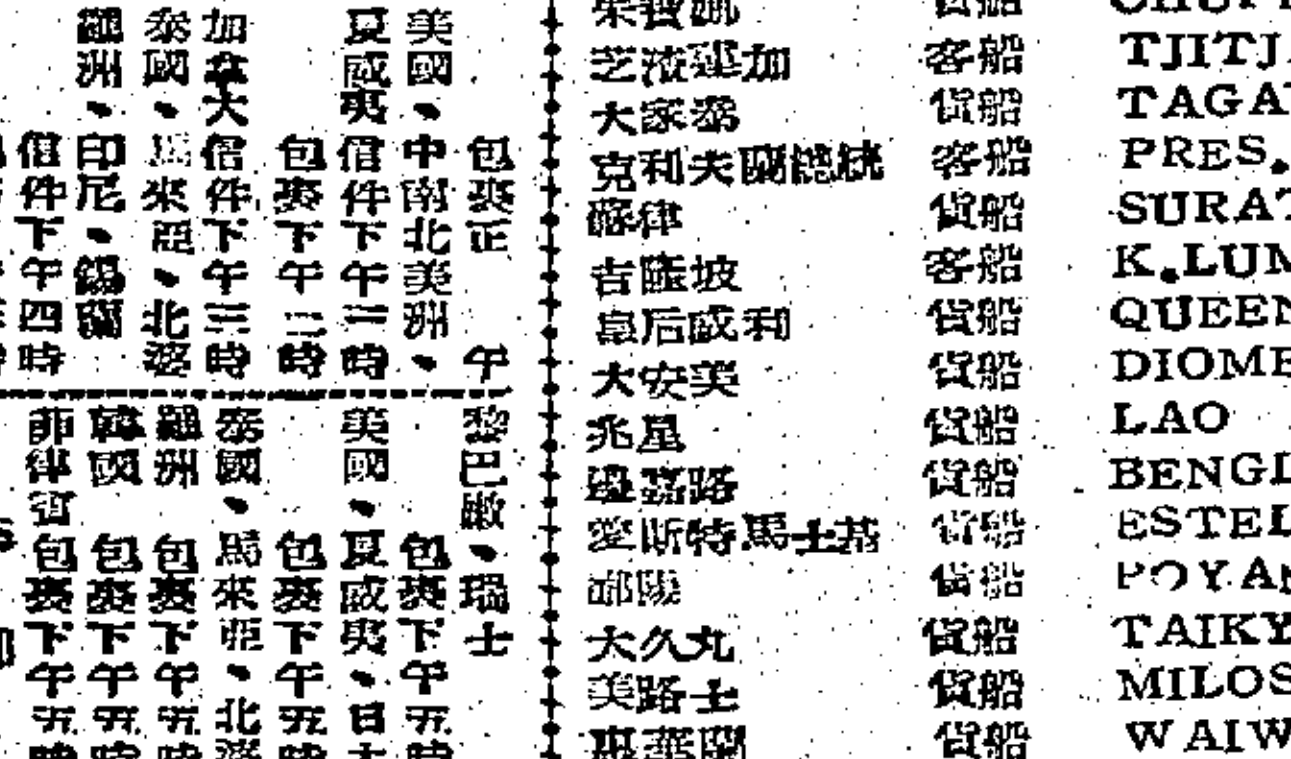 包裹正 午
美國、中南北美洲、
夏威夷信件下午二時
包裹下午二時
加拿大信件下午三時
泰國、馬來亞、北婆
錫蘭
信件下午四時
黎巴嫩、瑞士
包裹下午五時
美國、夏威夷、日
包裹下午五時
泰國、馬來亞、北婆
洲 包裹下午五時
韓國 包裹下午五時
菲律賓包裹下午五時
芝渣連加 客船 TJITJ
大家泰 貨船 TAGA
克利夫蘭總統 客船 PRES.
蘇律 貨船 SURAT
吉隆坡 客船 K.LUM
皇后威利 貨船 QUEEN
大安美 貨船 DIOME
兆星 貨船 LAO
邊嘉路 貨船 BENGL
愛斯特馬士基 貨船 ESTEL
鄱陽 貨船 POYAN
大久丸 貨船 TAIKY
美路士 貨船 MILOS
貨船 WAIW